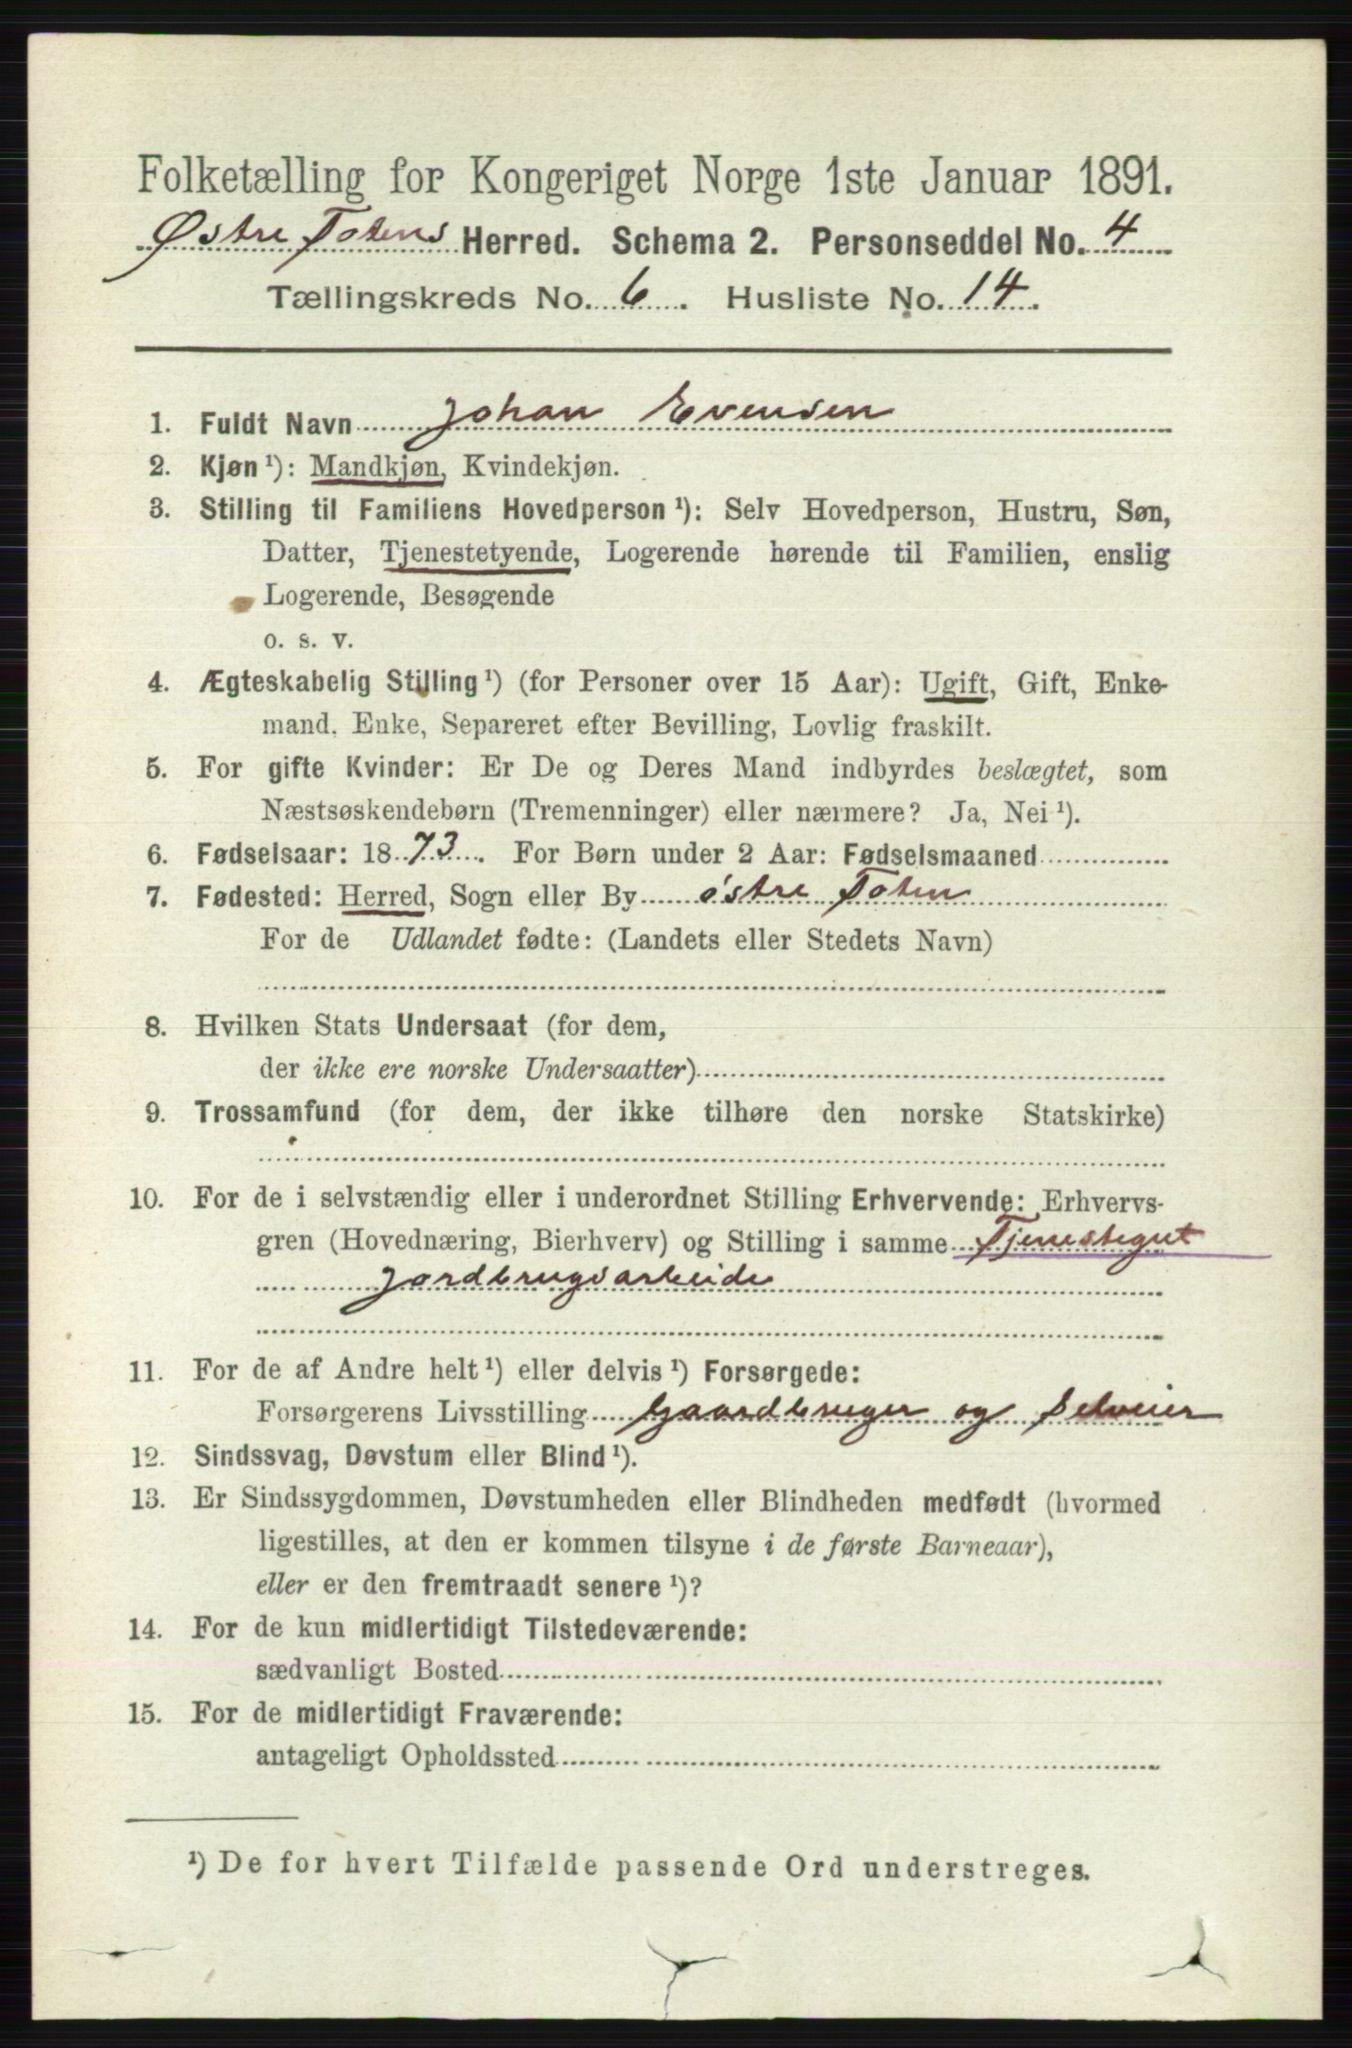 Folketælling for Kongeriget Norge 1ste Januar 1891.
Østre Totens Herred. Schema 2. Personseddel No. 4
Tællingskreds No. 6. Husliste No. 14.
1. Fuldt Navn Johan Evensen
2. Kjøn ¹): Mandkjøn, Kvindekjøn.
3. Stilling til Familiens Hovedperson ¹): Selv Hovedperson, Hustru, Søn,
Datter, Tjenestetyende, Logerende hørende til Familien, enslig
Logerende, Besøgende
o. s. v.
4. Ægteskabelig Stilling ¹) (for Personer over 15 Aar): Ugift, Gift, Enke-
mand, Enke, Separeret efter Bevilling, Lovlig fraskilt.
5. For gifte Kvinder: Er De og Deres Mand indbyrdes beslægtet, som
Næstsøskendebørn (Tremenninger) eller nærmere? Ja, Nei ¹).
6. Fødselsaar: 1873. For Børn under 2 Aar: Fødselsmaaned
7. Fødested: Herred, Sogn eller By østre Toten
For de Udlandet fødte: (Landets eller Stedets Navn)
8. Hvilken Stats Undersaat (for dem,
der ikke ere norske Undersaatter)
9. Trossamfund (for dem, der ikke tilhøre den norske Statskirke)
10. For de i selvstændig eller i underordnet Stilling Erhvervende: Erhvervs-
gren (Hovednæring, Bierhverv) og Stilling i samme Tjenestegut
Jordbrugsarbeide
11. For de af Andre helt ¹) eller delvis ¹) Forsørgede:
Forsørgerens Livsstilling Gaardbruger og Selveier
12. Sindssvag, Døvstum eller Blind ¹).
13. Er Sindssygdommen, Døvstumheden eller Blindheden medfødt (hvormed
ligestilles, at den er kommen tilsyne i de første Barneaar),
eller er den fremtraadt senere ¹)?
14. For de kun midlertidigt Tilstedeværende:
sædvanligt Bosted
15. For de midlertidigt Fraværende:
antageligt Opholdssted
¹) De for hvert Tilfælde passende Ord understreges.